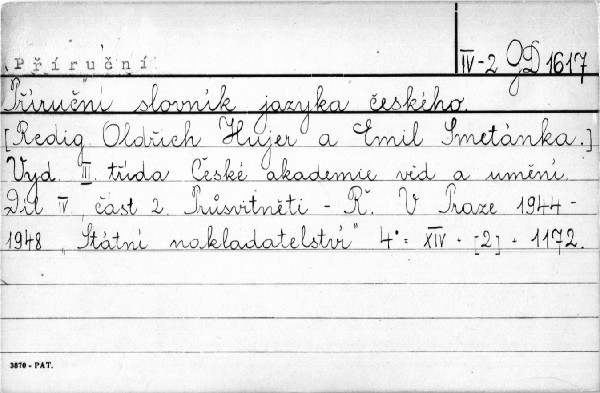 Příruční
IV-2 GD 1617
Příruční slovník jazyka českého.
[Redig. Oldřich Hujer a Emil Smetánka.]
Vyd. III. třída České akademie věd a umění.
Díl V, část 2. Průsvitněti - Ř. V Praze 1944-
1948 „Státní nakladatelství" 4° XIV - [2] - 1172.
3870 - PAT.